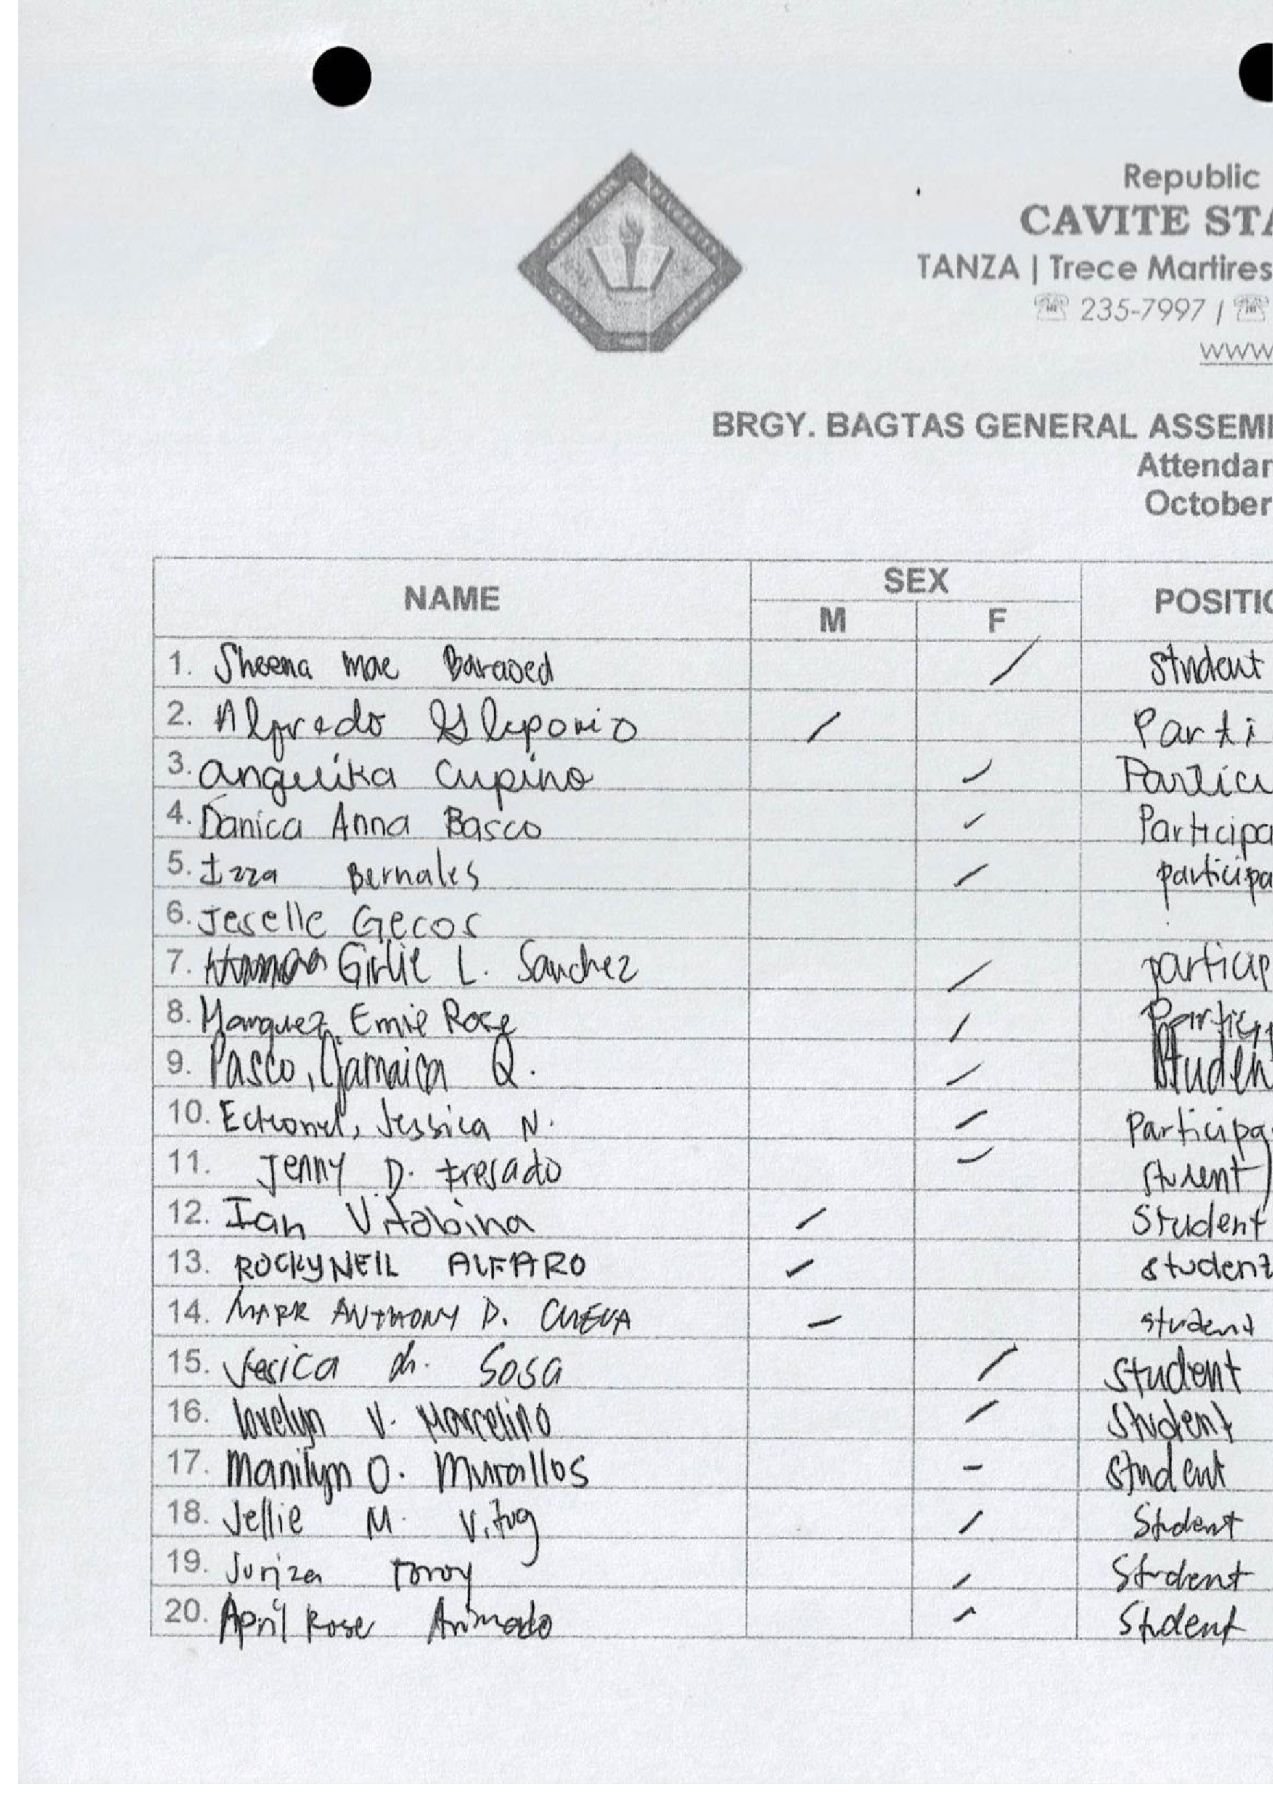 Republic
CAVITE STA
TANZA | Trece Martires
☏ 235-7997 / ☏
www
BRGY. BAGTAS GENERAL ASSEM
Attendan
October
NAME SEX POSITIO
M F
1. Sheena Mae student
2. Alfredo / Parti
3. Cupino Particu
4. Danica Anna Basco Participa
5. Izza Bernales / participa
6. Jeselle Gecos
7. Girlie L. Sanchez / particip
8. Marquez, Emie Rose / Particip
9. Pasco, Jamaica Q. / Studen
10. Jessica N. / Participa
11. Jenny D. student
12. Ian Vitobina / Student
13. ROCKYNEIL ALFARO student
14. MARK ANTHONY D. CUEVA student
15. Jesica Sosa / student
16. lovelyn V. Marcelino / Student
17. Manilyn O. Murallos - student
18. Jellie M. Vitug / Student
19. Juriza / Student
20. April Rose Animado Student